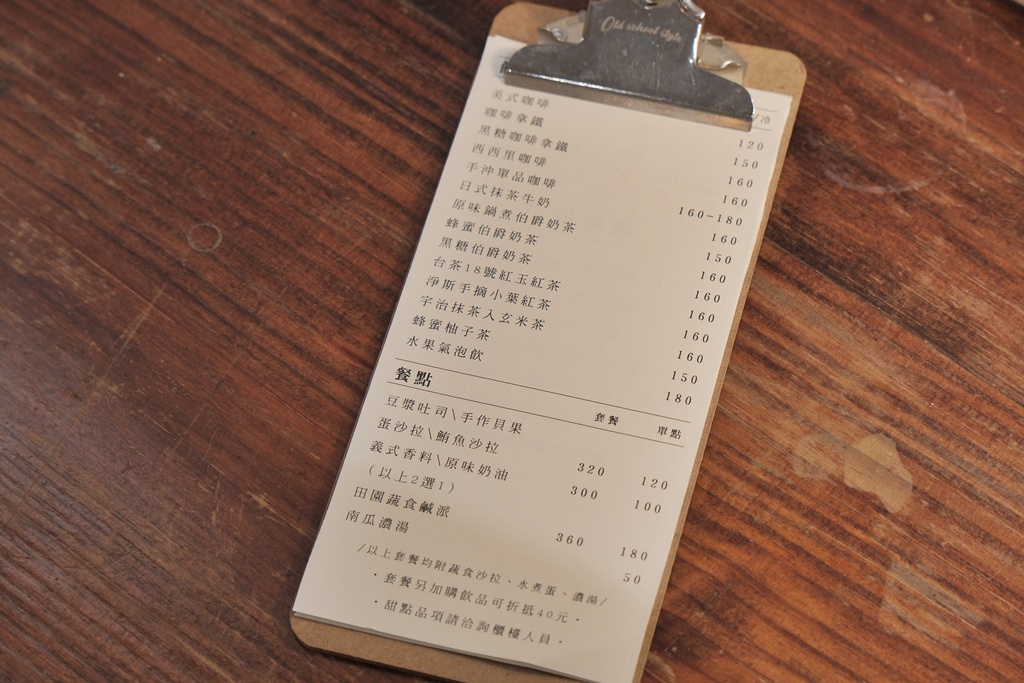 Old school style
/冷
美式咖啡 120
咖啡拿鐵 150
黑糖咖啡拿鐵 160
西西里咖啡 160
手沖單品咖啡 160-180
日式抹茶牛奶 160
原味鍋煮伯爵奶茶 150
蜂蜜伯爵奶茶 160
黑糖伯爵奶茶 160
台茶18號紅玉紅茶 160
淨斯手摘小葉紅茶 160
宇治抹茶入玄米茶 160
蜂蜜柚子茶 150
水果氣泡飲 180
餐點 套餐 單點
豆漿吐司\手作貝果
蛋沙拉\鮪魚沙拉 320 120
義式香料\原味奶油 300 100
(以上2選1)
田園蔬食鹹派 360 180
南瓜濃湯 50
/以上套餐均附蔬食沙拉、水煮蛋、濃湯/
·套餐另加購飲品可折抵40元·
·甜點品項請洽詢櫃檯人員·